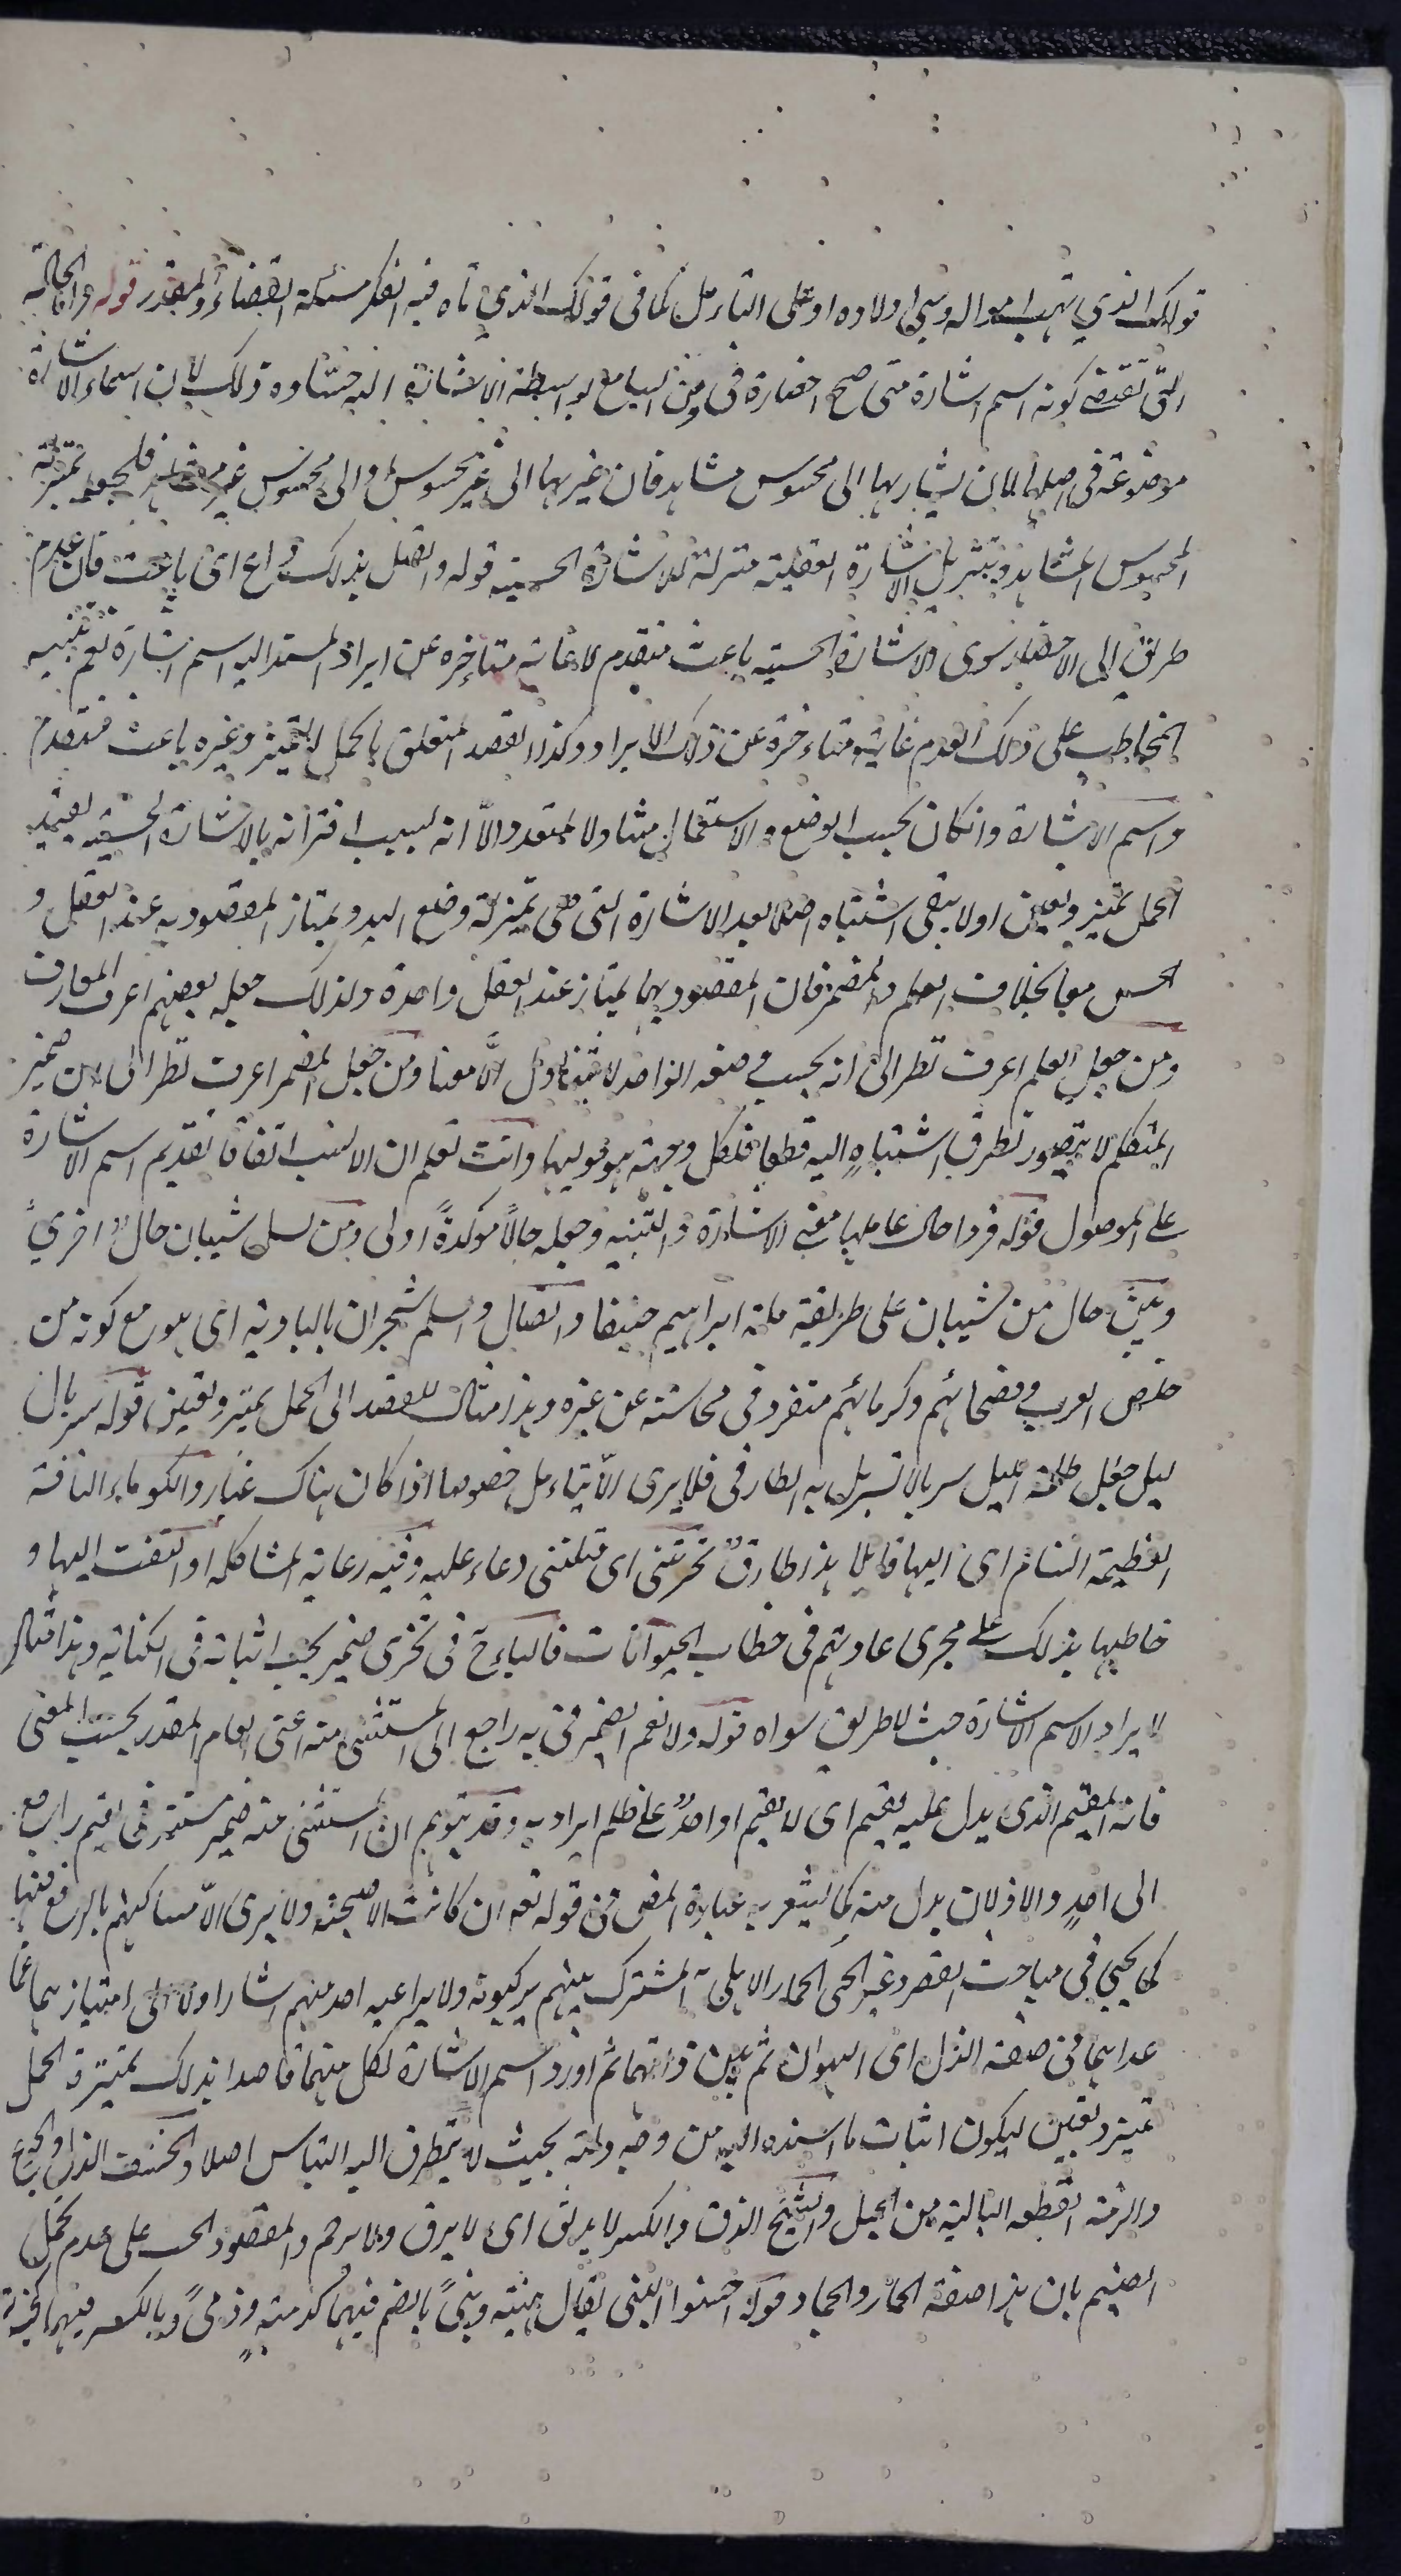 قولك الذي نهب امواله وسبى اولاده او على التأمل كما في قولك الذي تاه فيه الفكر مسئلة القضاء والقدر قوله واما الحالة
التي تقتضى كونه اسم اشارة متى صح احضاره في ذهن السامع بواسطة الاشارة اليه حسا وذلك لان اسماء الاشارة
موضوعة في اصلها لان يشار بها الى محسوس مشاهد فان غير بها الى غير محسوس او الى محسوس غير مشاهد فلجعله بمنزلة
المحسوس المشاهد وتنزيل الاشارة العقلية منزلة الاشارة الحسية قوله واتصل بذلك داع اى باعث فان عدم
طريق الى الاحضار سوى الاشارة الحسية باعث متقدم لا غاية متأخرة عن ايراد المسند اليه اسم اشارة نعم تنبيه
المخاطب على ذلك العدم غاية متاءخرة عن ذلك الايراد وكذا القصد المتعلق باكمل التميز وغيره باعث متقدم
واسم الاشارة وان كان بحسب الوضع والاستعمال متناولا لمتعدد الا انه بسبب اقترانه بالاشارة الحسية يفيد
اكمل تميز وتعين اولا يبقى اشتباه اصلا بعد الاشارة التى هى بمنزلة وضع اليد ويمتاز المقصود به عند العقل و
الحس معا بخلاف العلم والمضمر فان المقصود بهما يمتاز عند العقل وحده ولذلك جعله بعضهم اعرف المعارف
ومن جعل العلم اعرف نظر الى انه بحسب وضعه الواحد لا يتناول الا معينا ومن جعل المضمر اعرف نظر الى ان ضمير
المتكلم لا يتصور تطرق اشتباه اليه قطعا فلكل وجهة هو موليها وانت تعلم ان الانسب اتفاقا تقديم اسم الاشارة
على الموصول قوله فردا حال عاملها معنى الاشارة والتنبيه وجعله حالا مؤكدة اولى ومن نسل شيبان حال اخرى
وبين حال من شيبان على طريقة ملة ابراهيم حنيفا والضال والسلم شجران بالبادية اى هو مع كونه من
خلص العرب وفصحائهم وكرمائهم متفرد في محاسنه عن غيره وهذا مثال للقصد الى اكمل تميز وتعين قوله سربال
ليل جعل ظلمة الليل سربالا تسربل به الطارق فلا يرى الا بتاءمل خصوصا اذا كان هناك غبار والكوماء الناقة
العظيمة السنام اى اليها قائلا هذا طارق نحرتنى اى قتلتنى دعاء عليه وفيه رعاية المشاكلة او التفت اليها و
خاطبها بذلك على مجرى عادتهم في خطاب الحيوانات فالياء ح في نحرى ضمير يجب اثباته في الكتابة وهذا مثال
لايراد الاسم الاشارة حيث لا طريق سواه قوله ولا نعم الضمير في به راجع الى المستثنى منه اعنى العام المقدر بحسب المعنى
فانه المقيم الذى يدل عليه يقيم اى لا يقيم احد على ظلم يراد به وقد يتوهم ان المستثنى منه ضمير مستتر في يقيم راجع
الى احد والاذلان بدل منه كما يشعر به عبارة المص في قوله تعالى ان كانت الا صيحة ولا يرى الا مساكنهم بالرفع فيهما
كما يجيئ في مباحث القصر وعير الحى الحمار الاهلى المشترك بينهم يركبونه ولا يراعيه احد منهم اشار اولا الى امتيازهما عما
عداهما في صفة الذل اى الهوان ثم بين ذاتهما ثم اورد اسم الاشارة لكل منهما قاصدا بذلك تميزه اكمل
تميز وتعين ليكون اثبات ما اسنده اليه من وجه ولمة بحيث لا يتطرق اليه التباس اصلا والخسف الذل والجوع
والرمة القطعة البالية من الحبل والشج الدق والكسر لا يرثى اى لا يرق ولا يرحم والمقصود الحث على عدم تحمل
الضيم بان هذا صفة الحمار والجماد قوله احسنوا البنى يقال بنية وبنى بالضم فيهما كدمية ودمى وبالكسر فيهما كجزية